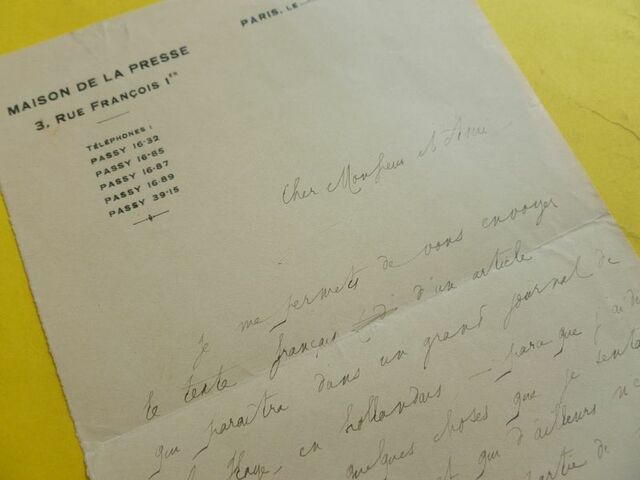 PARIS, LE
MAISON DE LA PRESSE
3, RUE FRANÇOIS Iᴱᴿ
TÉLÉPHONES :
PASSY 16-32
PASSY 16-85
PASSY 16-87
PASSY 16-89
PASSY 39-15
Cher Monsieur et
Je me permets de vous envoyer
le texte français d'un article
qui paraîtra dans un grand journal de
la Haye, en hollandais — parce que j'ai
quelques choses que je
qui d'ailleurs
partie de